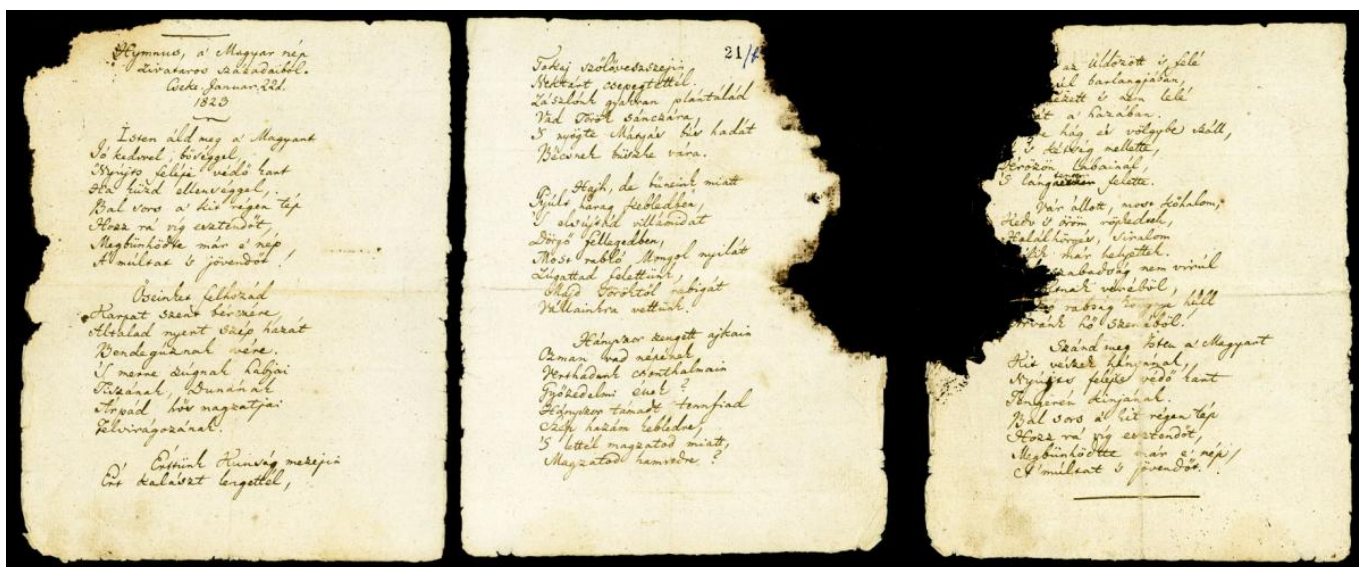 Hymnus, a' Magyar nép
zivataros századaiból.
Cseke Januar. 22d.
1823
Isten áld meg a' Magyart
Jó kedvvel, bőséggel,
Nyújts feléje védő kart
Ha küzd ellenséggel,
Bal sors a' kit régen tép
Hozz rá víg esztendőt,
Megbűnhődte már e' nép
A' múltat 's jövendőt!
Őseinket felhozád
Kárpát szent bérczére,
Általad nyert szép hazát
Bendegúznak vére.
'S merre zúgnak habjai
Tiszának, Dunának
Árpád hős magzatjai
Felvirágozának.
Értünk Kunság mezejin
Ért kalászt lengettél,
21/
Tokaj szőlőveszszejin
Nektárt csepegtettél.
Zászlónk gyakran plántálád
Vad Török sánczára,
'S nyögte Mátyás bús hadát
Bécsnek büszke vára.
Hajh, de bűneink miatt
Gyúlt harag kebledben,
'S elsújtád villámidat
Dörgő fellegedben,
Most rabló Mongol nyilát
Zúgattad felettünk,
Majd Töröktől rabigát
Vállainkra vettünk.
Hányszor zengett ajkain
Ozman vad népének
Vert hadunk csonthalmain
Győzedelmi ének?
Hányszor támadt tennfiad
Szép hazám kebledre,
'S lettél magzatod miatt,
Magzatod hamvedre?
az üldözött 's felé
barlangjában,
nézett 's nem lelé
a' hazában.
hág és völgybe száll,
's kétség mellette,
Vérözön lábainál,
'S lángtenger felette.
Vár állott, most kőhalom,
Kedv 's öröm röpkedtek,
Halálhörgés, siralom
már helyettek.
szabadság nem virúl
véréből,
rabság könnye hull
hő szeméből!
Szánd meg Isten a' Magyart
Kit vészek hányának,
Nyújts feléje védő kart
Tengerén kínjának.
Bal sors a' kit régen tép
Hozz rá víg esztendőt,
Megbűnhődte már e' nép
A' múltat 's jövendőt!